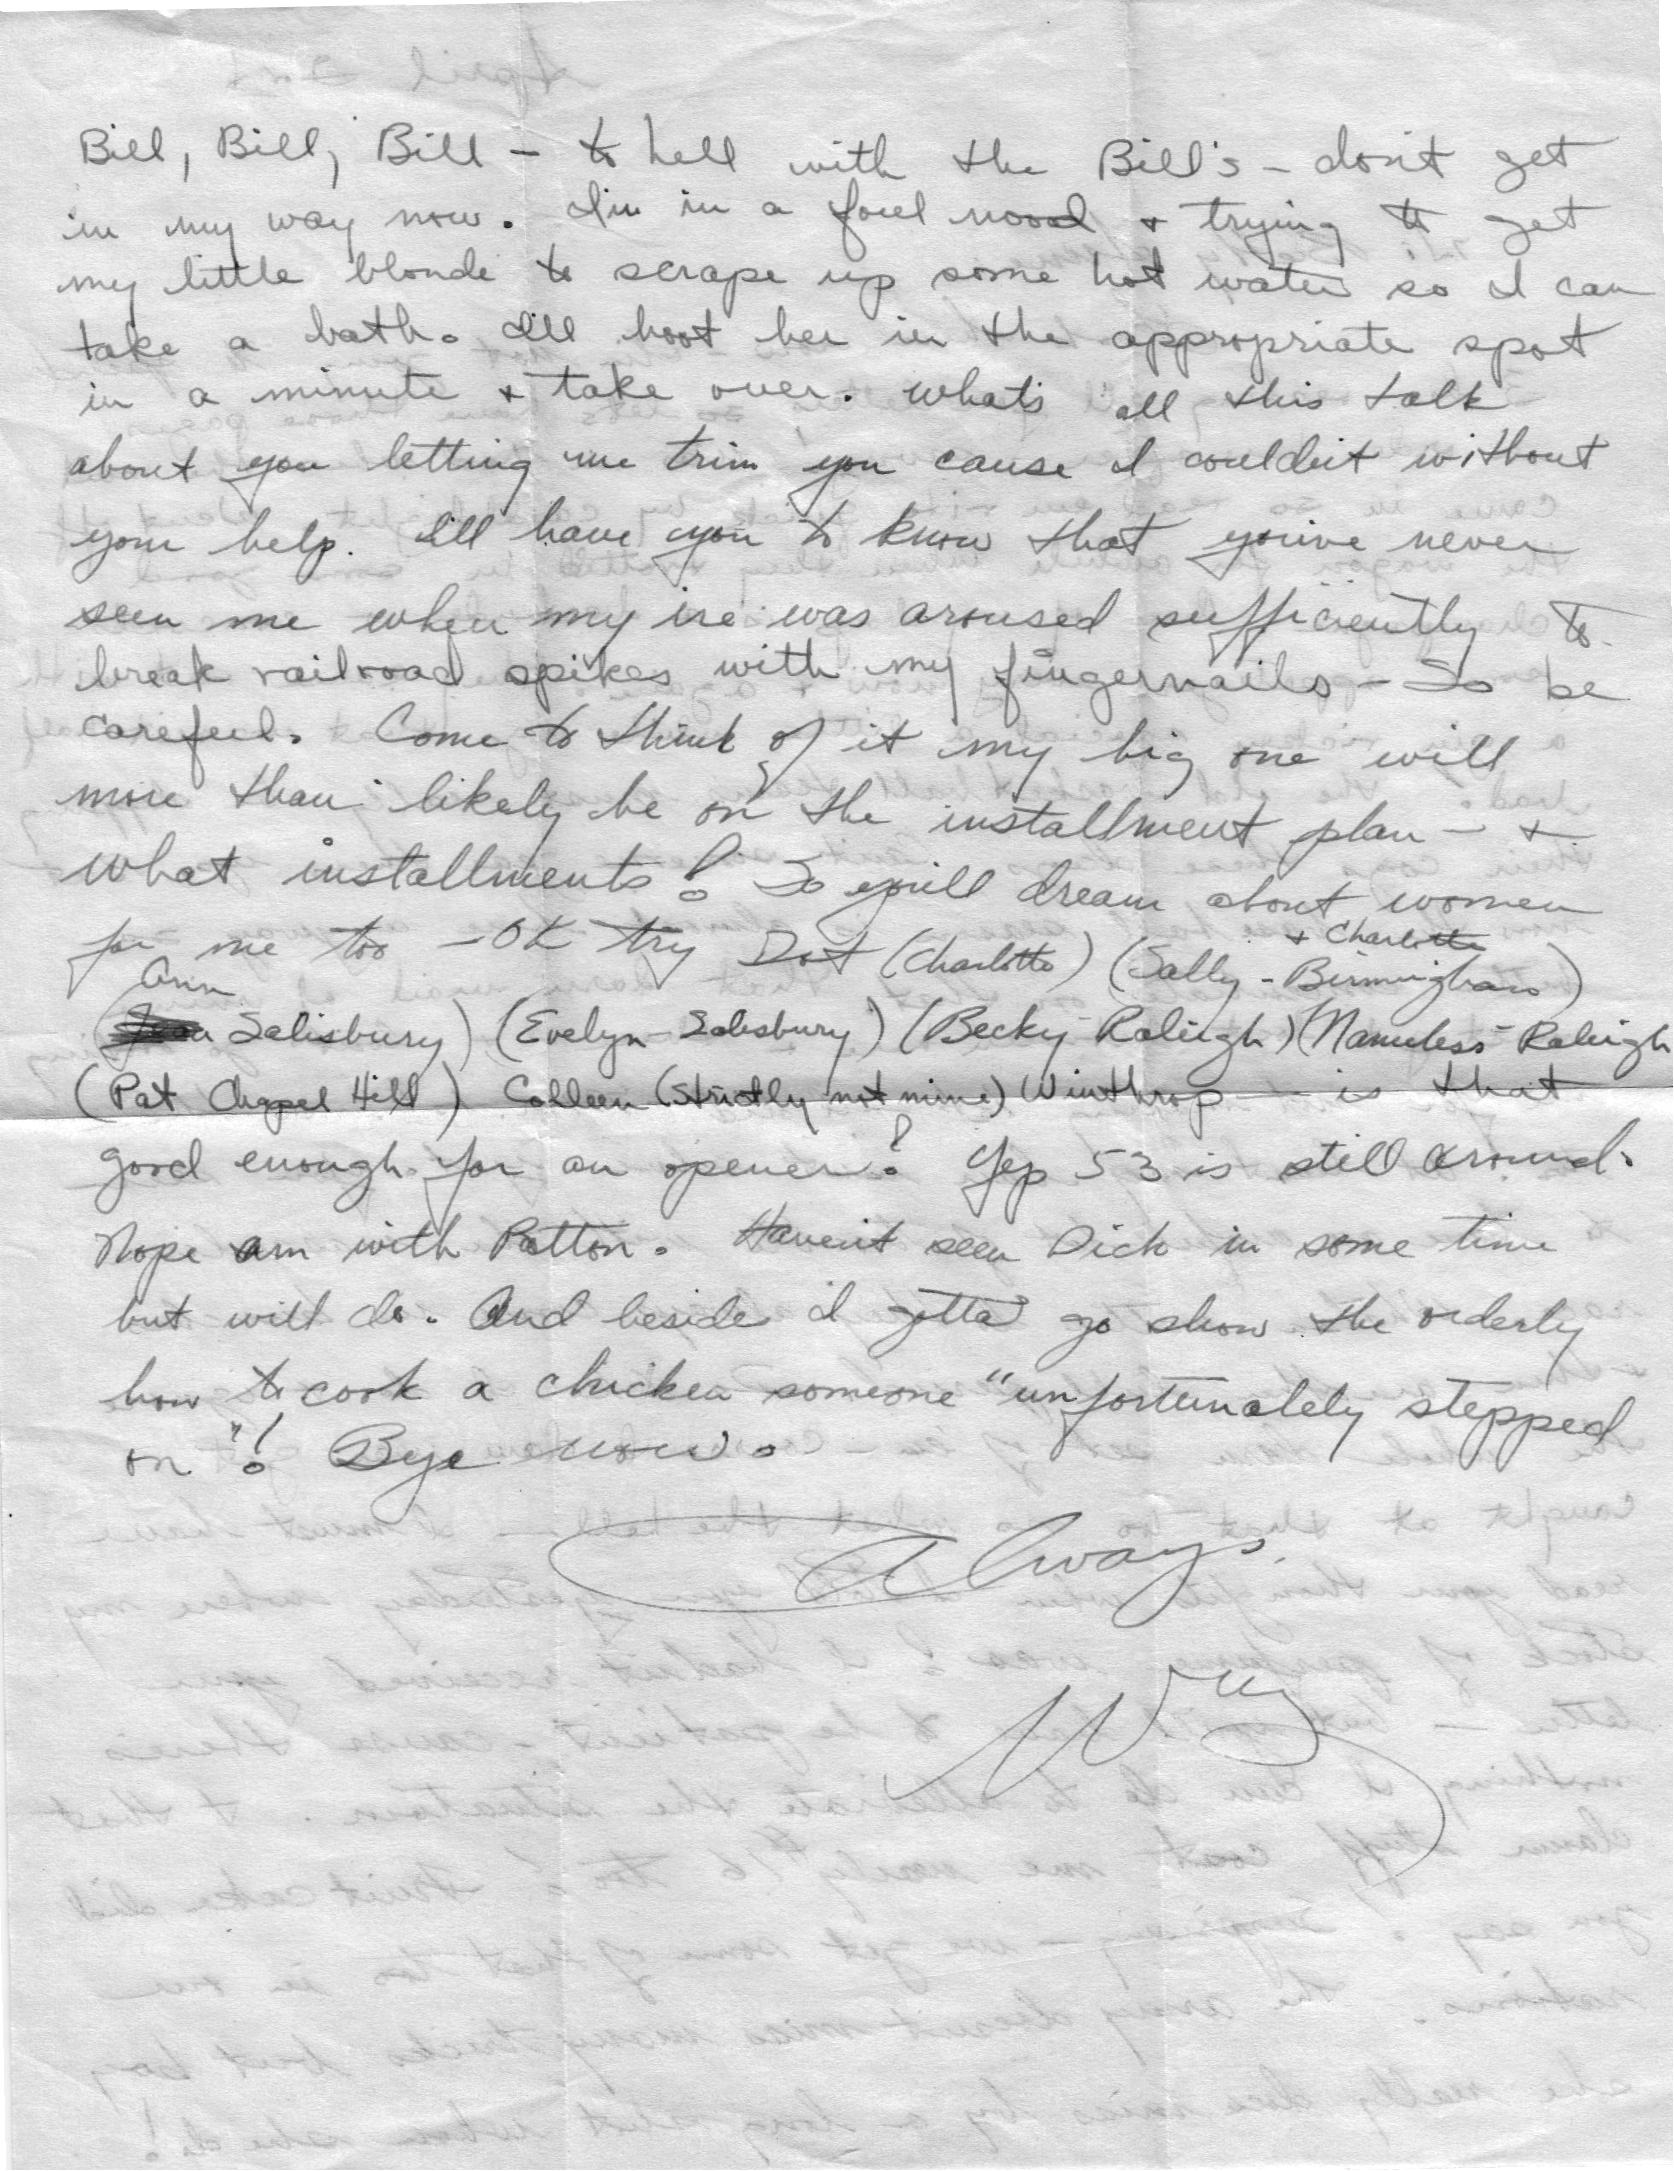 Bill, Bill, Bill – to hell with the Bill's – don't get
in my way now. I'm in a foul mood + trying to get
my little blonde to scrape up some hot water so I can
take a bath. I'll boot her in the appropriate spot
in a minute + take over. What's all this talk
about you letting me trim you cause I couldn't without
your help. I'll have you to know that you've never
seen me when my ire was aroused sufficiently to
break railroad spikes with my fingernails – So be
careful. Come to think of it my big one will
more than likely be on the installment plan – +
what installments! So you'll dream about women
for me too – OK try Dot (Charlotte) (Sally – Birmingham + Charlotte)
(Ann Salisbury) (Evelyn – Salisbury) (Becky – Raleigh) (Nameless – Raleigh
(Pat Chapel Hill) Colleen (strictly not mine) Winthrop – is that
good enough for an opener? Yep 53 is still around.
Nope am with Patton. Haven't seen Dick in some time
but will do. And beside I gotta go show the orderly
how to cook a chicken someone "unfortunately stepped
on"! Bye now.
Always.